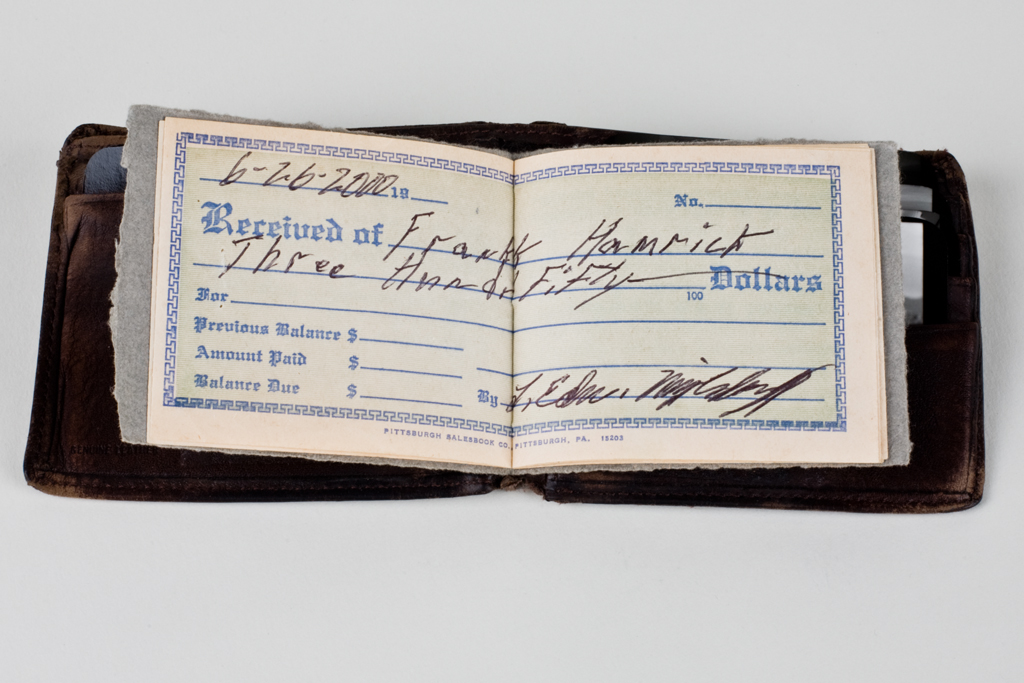 6-26-2000 19
No.
Received of Frank Hamrick
Three Hund. Fifty 100 Dollars
For
Previous Balance $
Amount Paid $
Balance Due $
By
PITTSBURGH SALESBOOK CO. PITTSBURGH, PA. 15203